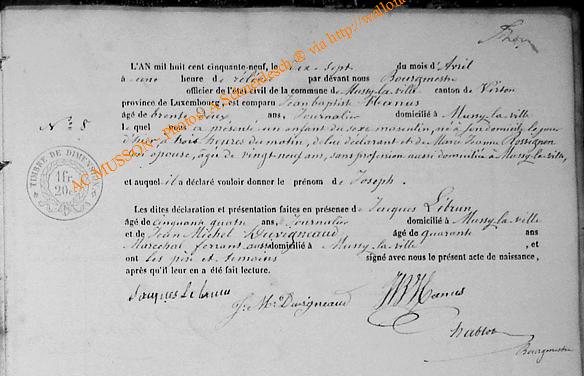 L'AN mil huit cent cinquante-neuf, le dix sept du mois d'Avril
à une heure de relevée par devant nous Bourgmestre
officier de l'état civil de la commune de Mussy-la-ville canton de Virton
province de Luxembourg, est comparu Jean baptiste Hanus
âgé de trente deux ans, Journalier domicilié à Mussy-la-ville
N° 8
le quel nous a présenté un enfant du sexe masculin, né à son domicile le jour
d'hier à trois heures du matin, de lui déclarant et de Marie Jeanne Rossignon
son épouse, âgée de vingt-neuf ans, sans profession aussi domiciliée à Mussy-la-ville,
et auquel il a déclaré vouloir donner le prénom de Joseph.
TIMBRE DE DIMENSION
1 fr.
20
Les dites déclaration et présentation faites en présence de Jacques Lebrun
âgé de cinquante quatre ans, Journalier domicilié à Mussy-la-ville
et de Jean Michel Duvigneaud âgé de quarante ans
Marechal ferrant, aussi domicilié à Mussy-la-ville, et
ont les père et temoins signé avec nous le présent acte de naissance,
après qu'il leur en a été fait lecture.
Jacques Lebrun
J. M. Duvigneaud
JB Hanus
Bourgmestre
AC MUSSON - Photo © A. via http://wallon